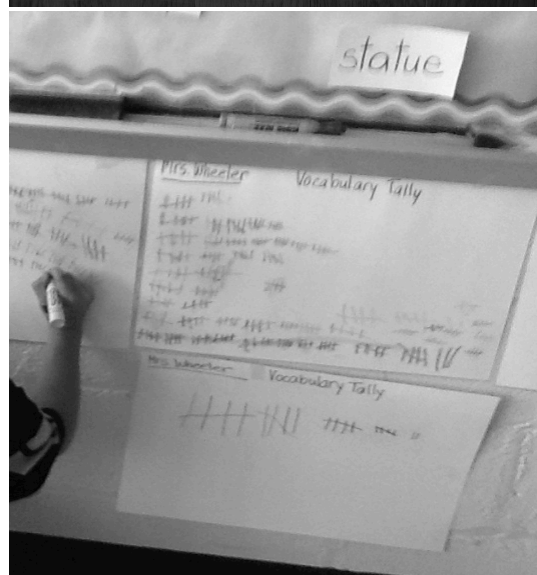 statue
Mrs. Wheeler Vocabulary Tally
Mrs Wheeler Vocabulary Tally